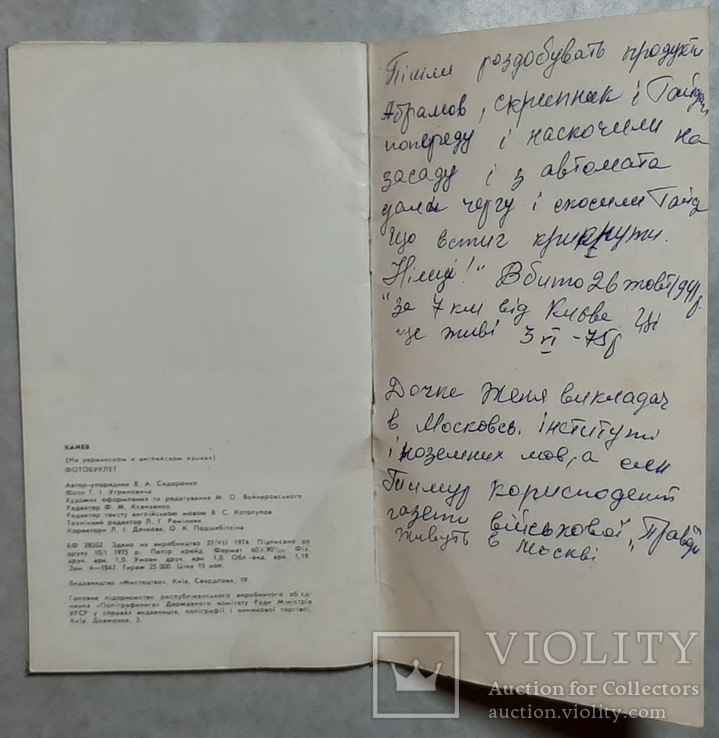 КАНЕВ
(На украинском и английском языках)
ФОТОБУКЛЕТ
Автор-упорядник В. А. Сидоренко
Фото Г. І. Угриновича
Художнє оформлення та редагування М. О. Войнаровського
Редактор Ф. М. Ксензенко
Редактор тексту англійською мовою В. С. Котолупов
Технічний редактор Л. Г. Ремізник
Коректори Л. І. Дячкова, О. К. Подшибіткіна
БФ 28502. Здано на виробництво 27/VII 1974 Підписано до
друку 10/I 1975 р. Папір крейд. Формат 60×90¹/₂₀. Фіз.
друк. арк. 1,0. Умовн. друк. арк. 1,0. Обл.-вид. арк. 1,19.
Зам. 4—1847. Тираж 25 000. Ціна 15 коп.
Видавництво «Мистецтво», Київ, Свердлова, 19.
Головне підприємство республіканського виробничого об'єд-
нання «Поліграфкнига» Державного комітету Ради Міністрів
УРСР у справах видавництв, поліграфії і книжкової торгівлі,
Київ, Довженка, 3.
Пішли роздобувать продукти
Абрамов, Скрипник і
попереду і наскочили на
засаду і з автомата
дали чергу і скосили Гайд
що встиг крикнути.
Німці!" Вбито 26 жовт 1941р.
"за 7 км від Києва
ще живі 3 VI -75р
Дочне Женя викладач
в Московсь. інституті
іноземних мов, а син
корисподент
газети військової „Правди
живуть в Москві
VIOLITY
Auction for Collectors
auction.violity.com